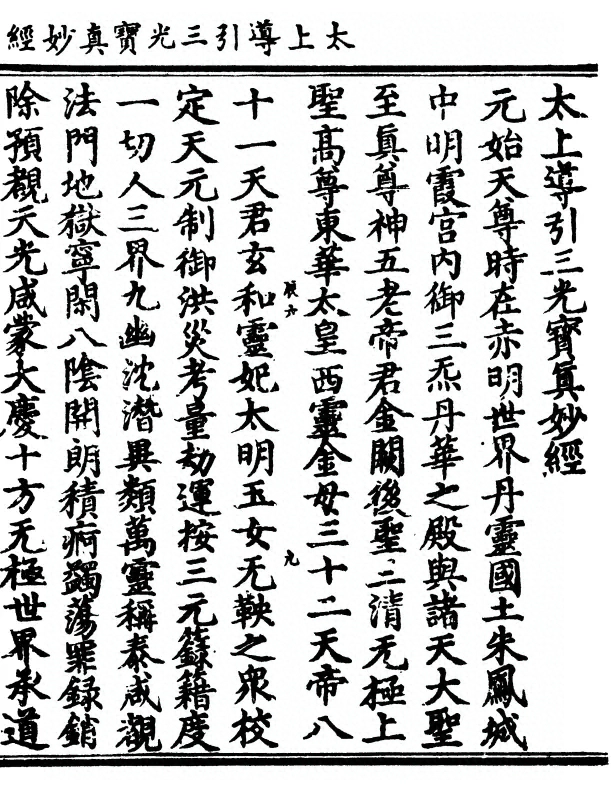 太上導引三光寶真妙經
太上導引三光寶眞妙經
元始天尊時在赤明世界丹靈國土朱鳳城
中明霞宮内御三炁丹華之殿與諸天大聖
至眞尊神五老帝君金闕後聖三清无極上
聖高尊東華太皇西靈金母三十二天帝八
十一天君玄和靈妃太明玉女无鞅之衆校
定天元制御洪災考量劫運按三元籙籍度
一切人三界九幽沈潛異類萬靈稱泰咸觀
法門地獄寧閑八陰開朗積痾蠲蕩罪録銷
除預覩天光咸蒙大慶十方无極世界承道